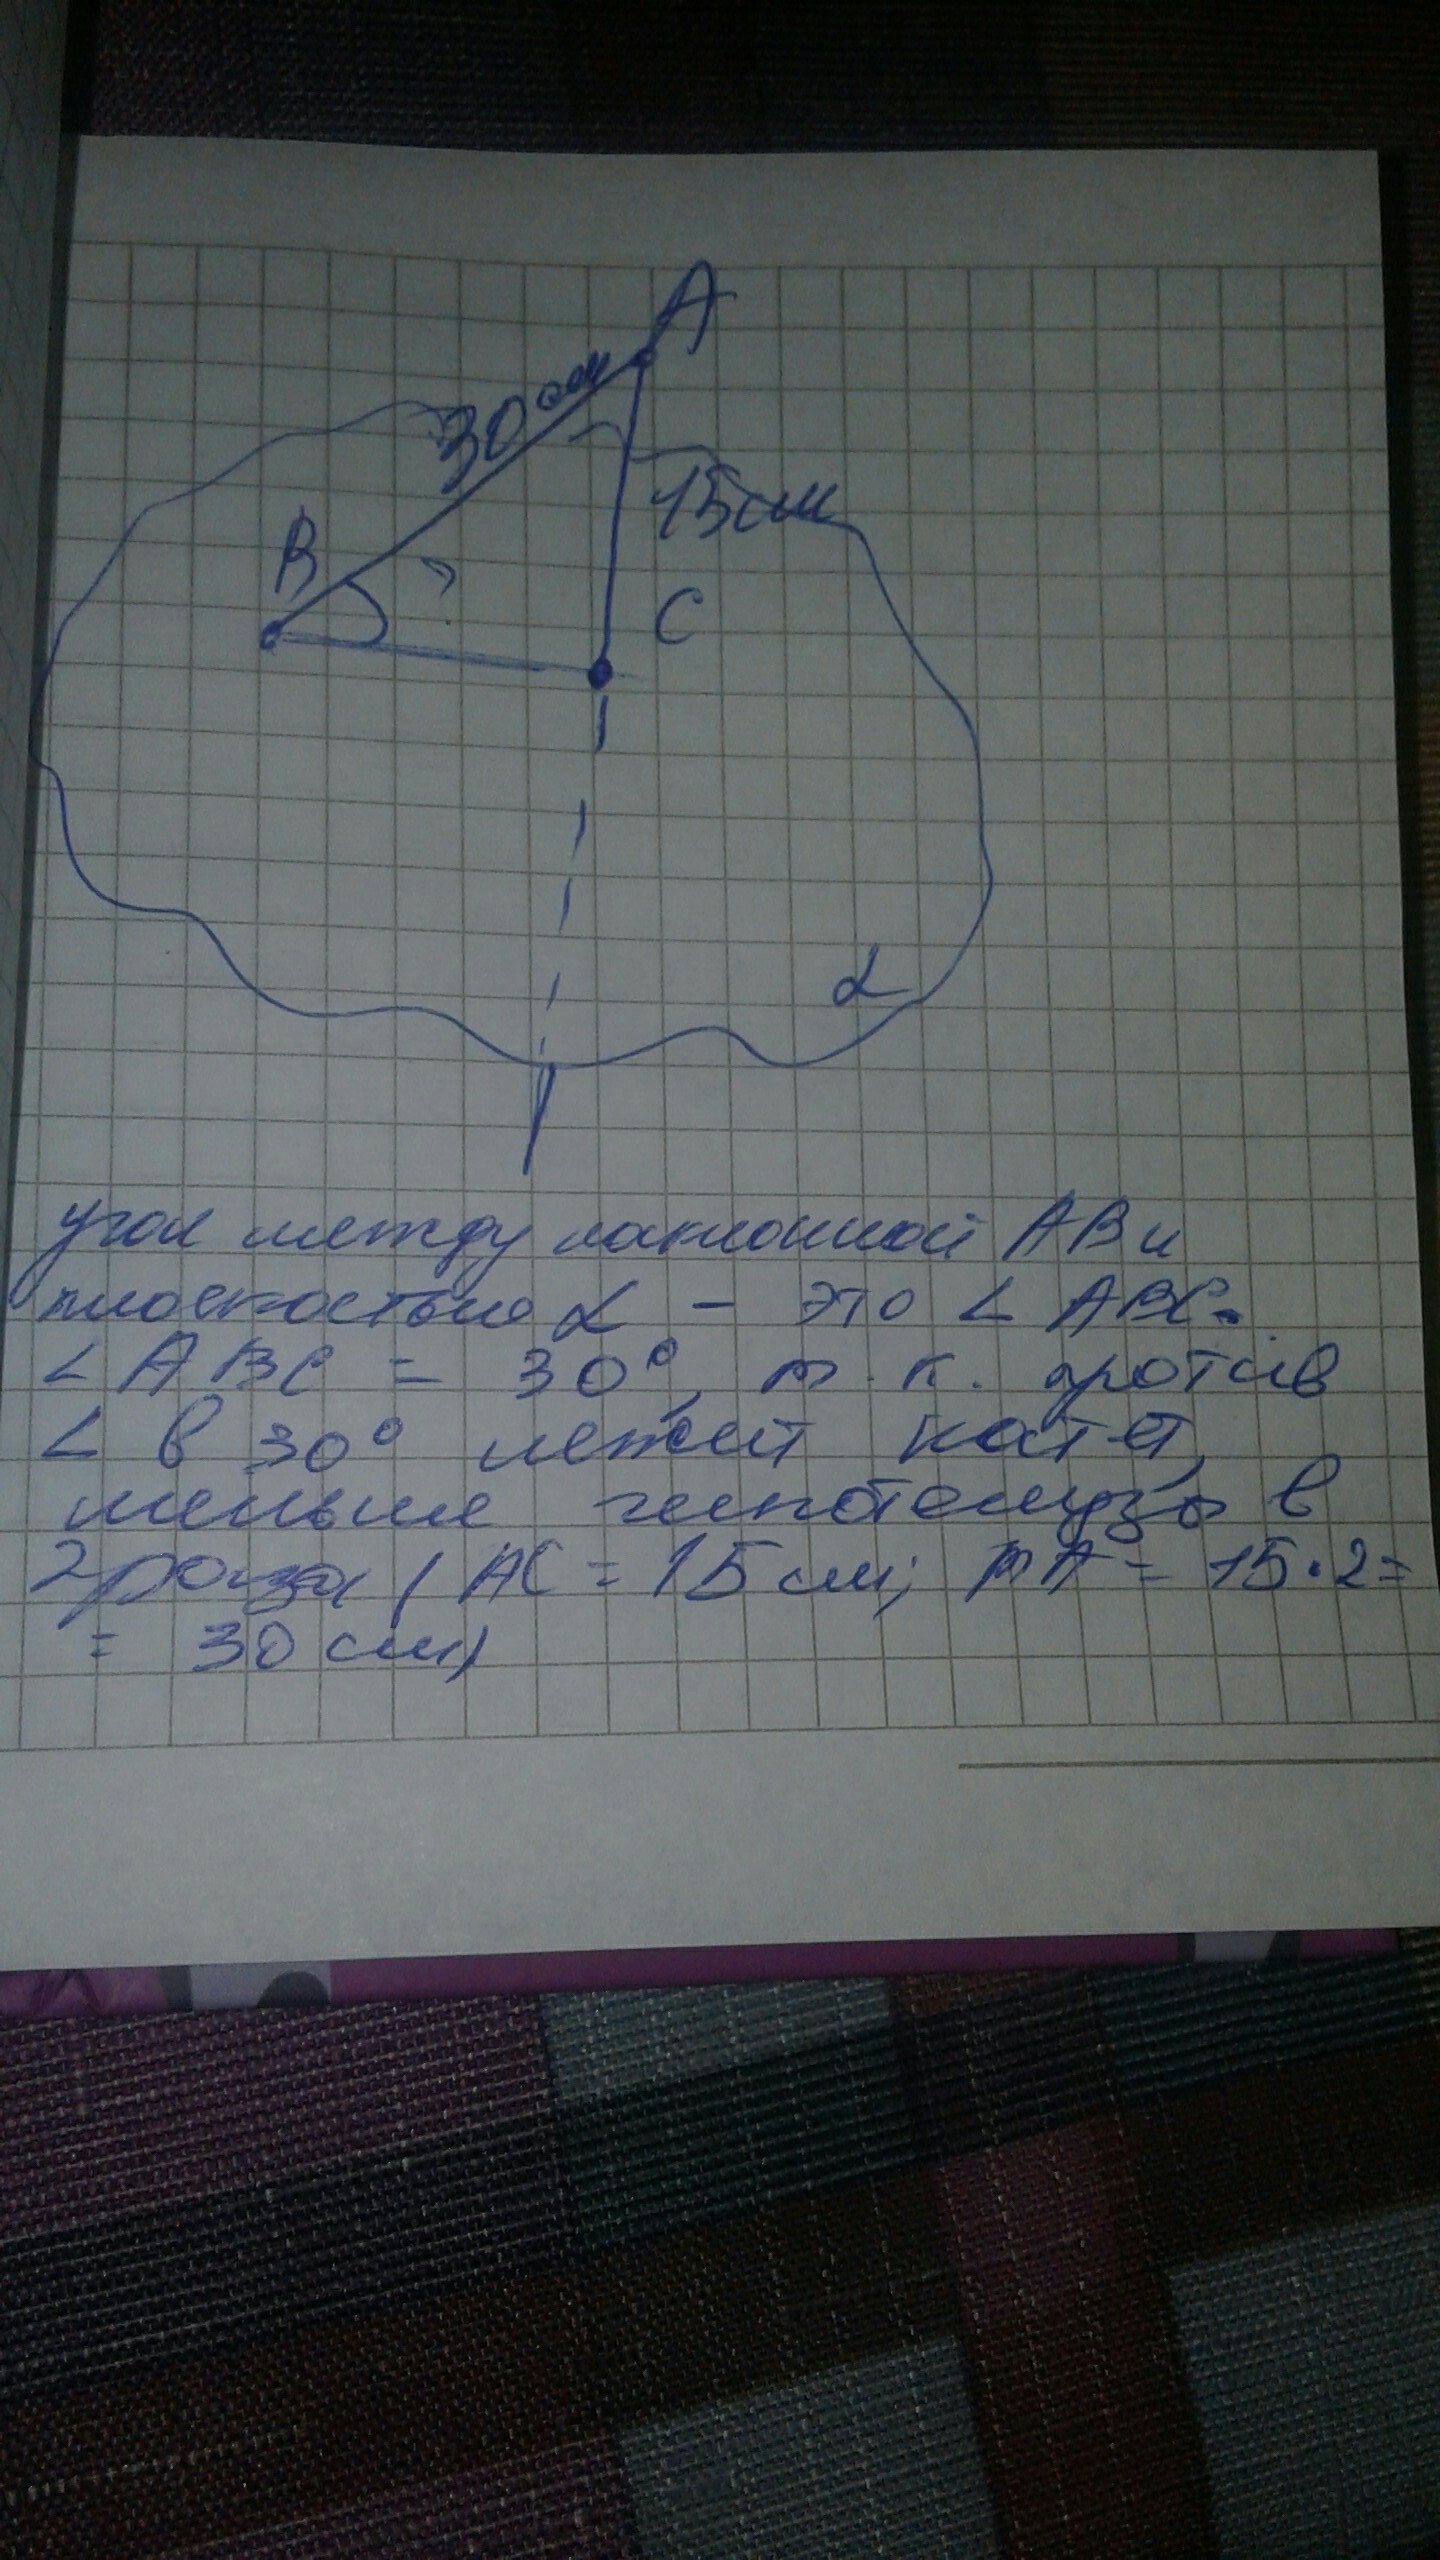 A
30 см
15 см
B
?
C
α
угол между наклонной AB и
плоскостью α - это ∠ ABC.
∠ ABC = 30°, т.к. против
∠ в 30° лежит катет,
меньше гипотенузы в
2 раза ( AC = 15 см; A = 15·2=
= 30 см)